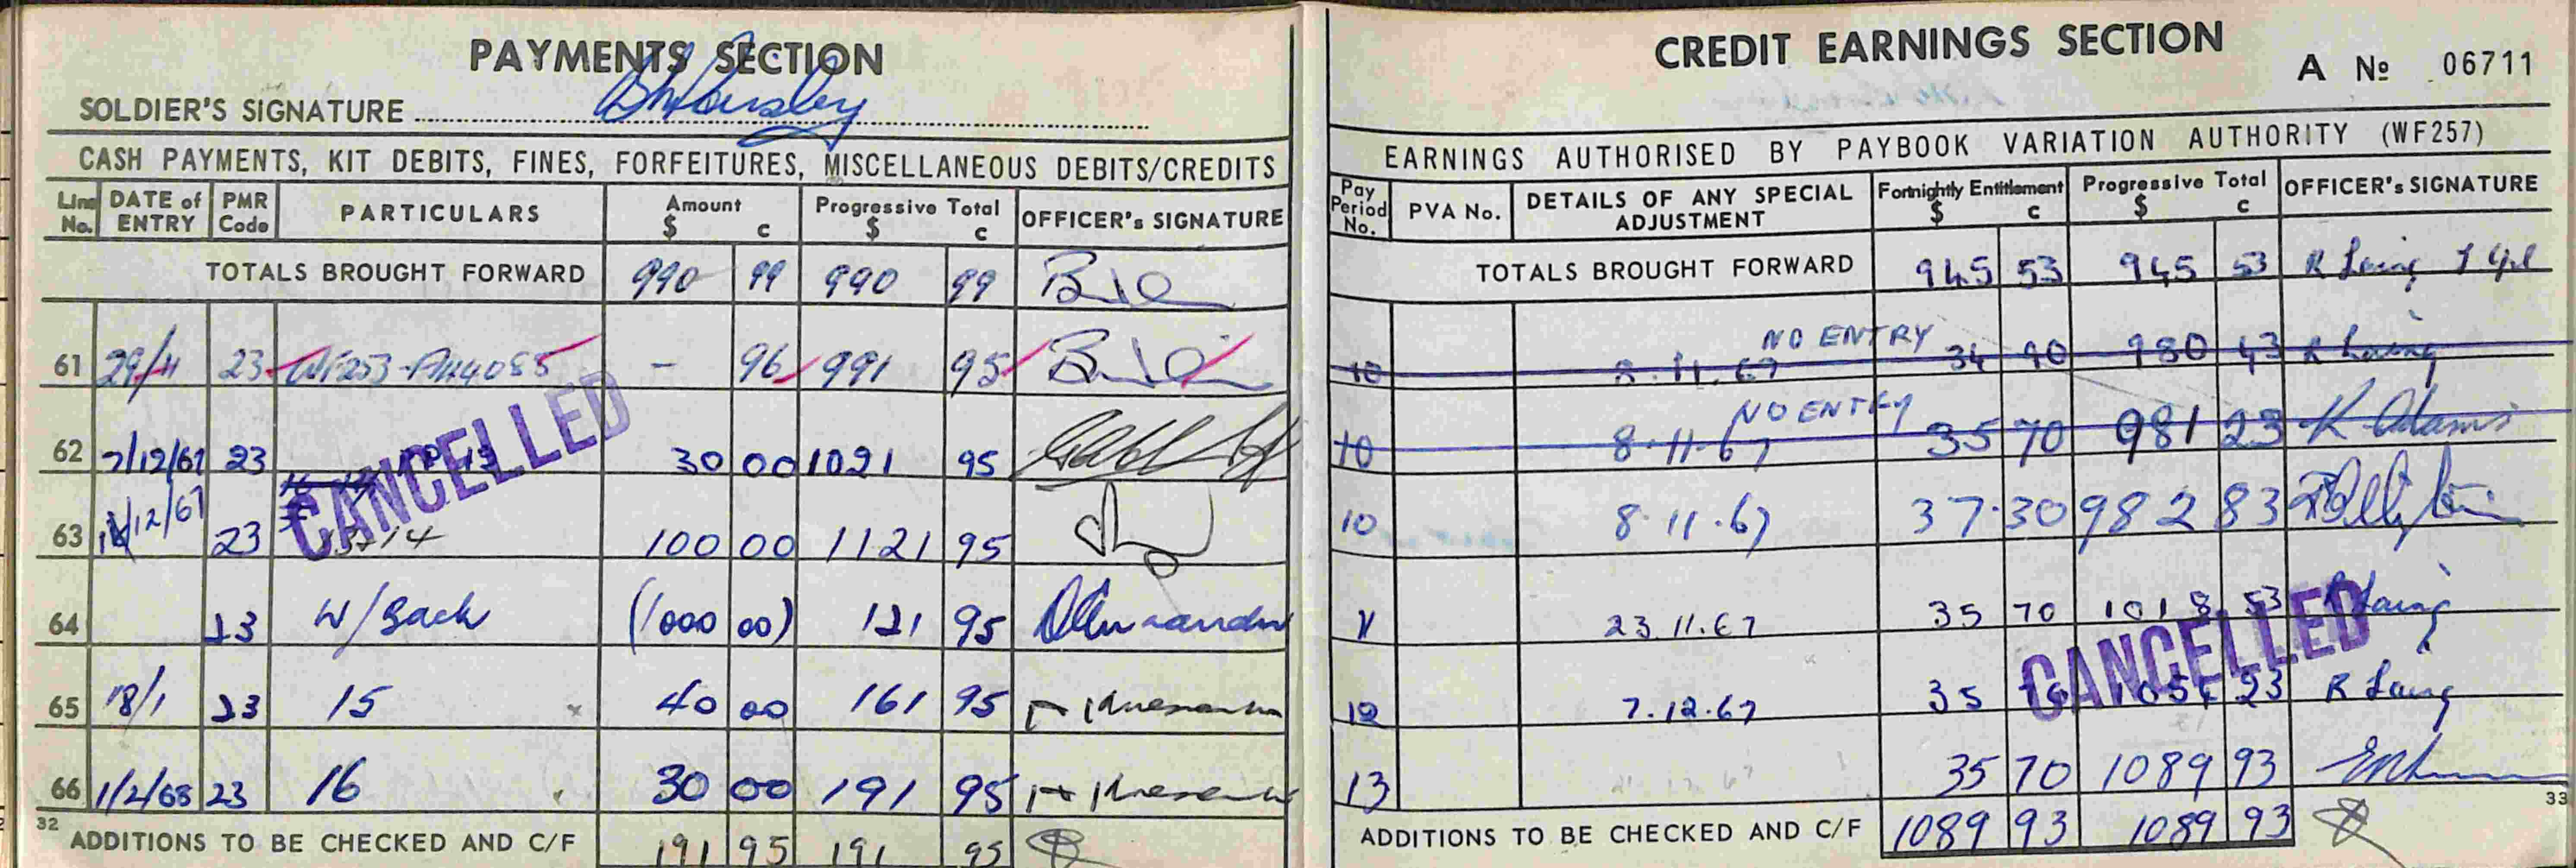 PAYMENTS SECTION
SOLDIER'S SIGNATURE
CASH PAYMENTS, KIT DEBITS, FINES, FORFEITURES, MISCELLANEOUS DEBITS/CREDITS
Line No. DATE of ENTRY PMR Code PARTICULARS Amount $ c Progressive Total $ c OFFICER's SIGNATURE
TOTALS BROUGHT FORWARD 990 99 990 99
61 29/11 23 WF253 - A114085 - 96 991 95
62 7/12/67 23 30 00 1021 95
63 12/67 23 13+14 100 00 1121 95
CANCELLED
64 23 W/Back (1000 00) 121 95
65 18/1 23 15 40 00 161 95
66 1/2/68 23 16 30 00 191 95
32 ADDITIONS TO BE CHECKED AND C/F 191 95 191 95
CREDIT EARNINGS SECTION
A No 06711
EARNINGS AUTHORISED BY PAYBOOK VARIATION AUTHORITY (WF257)
Pay Period No. PVA No. DETAILS OF ANY SPECIAL ADJUSTMENT Fortnightly Entitlement $ c Progressive Total $ c OFFICER's SIGNATURE
TOTALS BROUGHT FORWARD 945 53 945 53 R Laing
NO ENTRY
10 8.11.67 34 90 980 43 R Laing
NO ENTRY
10 8.11.67 35 70 981 23 K Adams
10 8.11.67 37.30 982 83
11 23.11.67 35 70 1018 53 R Laing
CANCELLED
12 7.12.67 35 70 1054 23 R Laing
13 35 70 1089 93
33
ADDITIONS TO BE CHECKED AND C/F 1089 93 1089 93